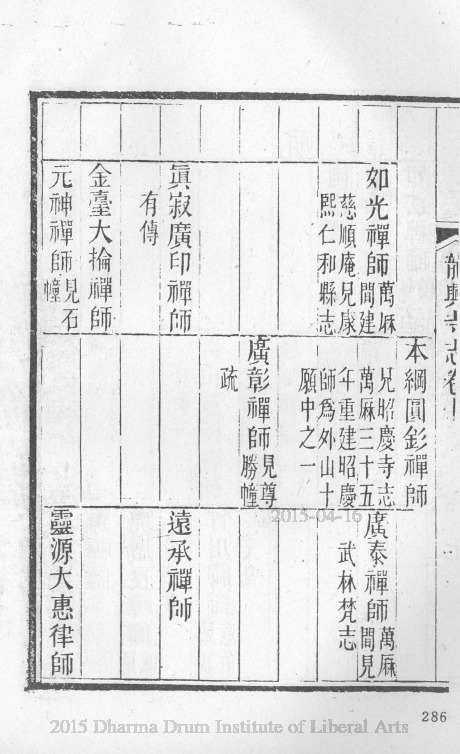 龍興寺志卷
如光禪師萬厤
間建
慈順庵見康
熙仁和縣志
眞寂廣印禪師
有傳
金臺大掄禪師
元神禪師見石
幢
本綱圓禪師
見昭慶寺志
萬厤三十五
年重建昭慶
師爲外山十
願中之一
廣彰禪師見尊
勝幢
疏
廣泰禪師萬厤
間見
武林梵志
遠承禪師
靈源大惠律師
2015-04-16
286
2015 Dharma Drum Institute of Liberal Arts